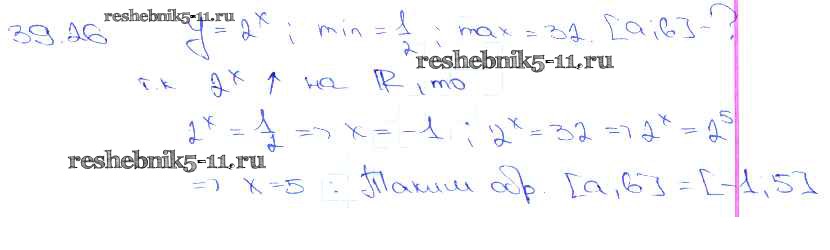 reshebnik5-11.ru
39.26 y = 2^x ; min = 1/2 ; max = 32. [a; b] - ?
reshebnik5-11.ru
т.к 2^x ↑ на ℝ, то
2^x = 1/2 => x = -1 ; 2^x = 32 => 2^x = 2^5
reshebnik5-11.ru
=> x = 5 : Таким обр. [a, b] = [-1; 5]